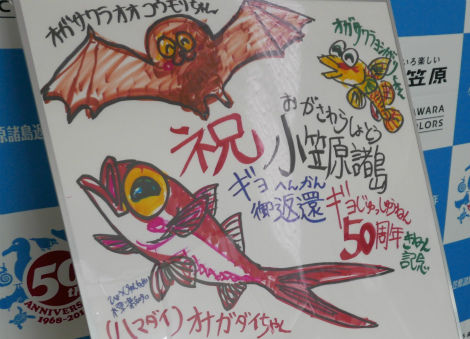 オガサワラオオコウモリちゃん
いろ楽しい
笠原
WARA
COLORS
祝
おがさわらしょとう
小笠原諸島
ギョへんかん
御返還
ギョじゅっしゅうねん
50周年
きねん
記念
(ハマダイ)オナガダイちゃん
50
ANNIVERS
1968-201